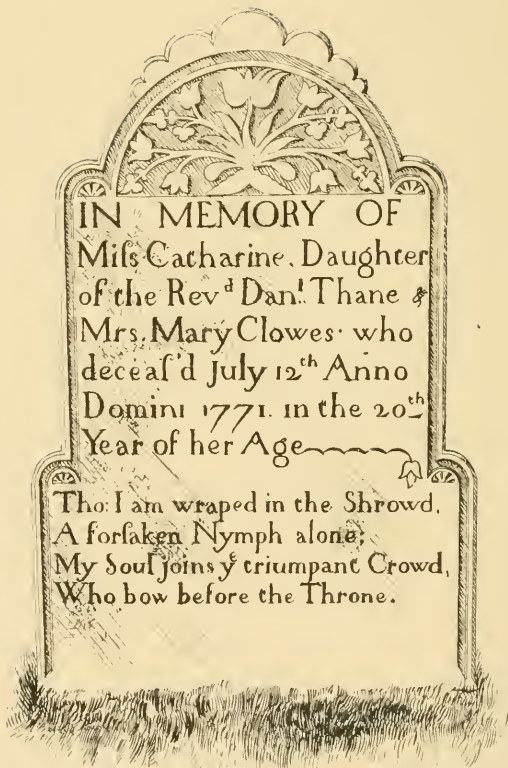 IN MEMORY OF
Miſs Catharine. Daughter
of the Revᵈ Danˡ. Thane &
Mrs. Mary Clowes· who
deceaſ'd July 12ᵗʰ Anno
Domini 1771. in the 20ᵗʰ
Year of her Age
Tho: I am wraped in the Shrowd,
A forſaken Nymph alone;
My Soul joins yᵉ triumpant Crowd,
Who bow before the Throne.